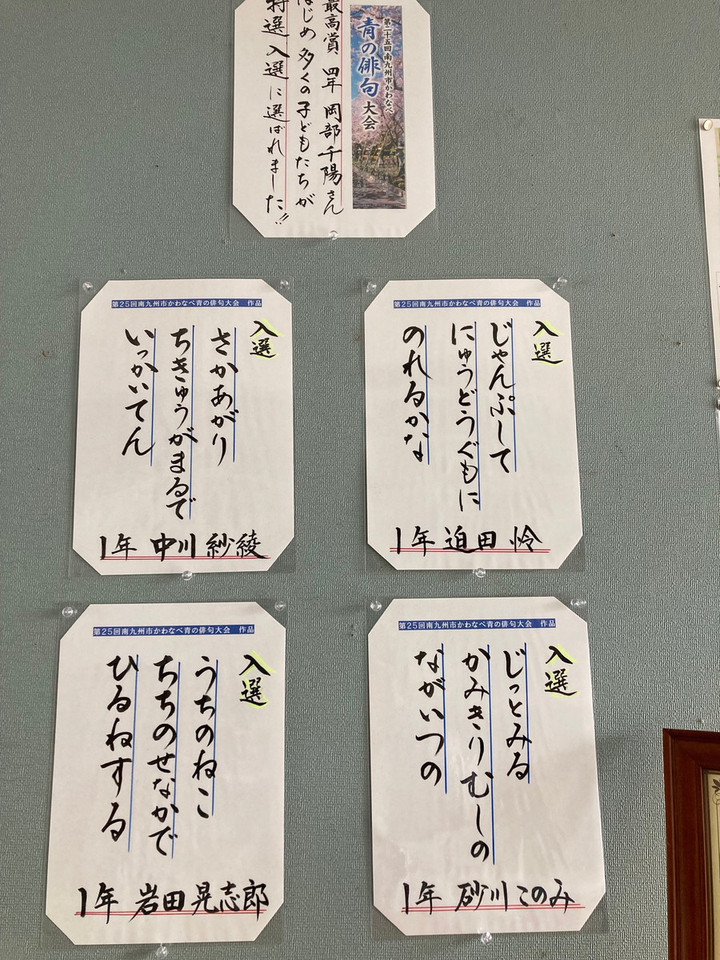 第二十五回 南九州市かわなべ
青の俳句大会
最高賞 四年 岡部千陽さん
はじめ 多くの子どもたちが
特選 入選に選ばれました!!
第25回南九州市かわなべ青の俳句大会 作品
入選
じゃんぷして
にゅうどうぐもに
のれるかな
1年 迫田 怜
第25回南九州市かわなべ青の俳句大会 作品
入選
さかあがり
ちきゅうがまるで
いっかいてん
1年 中川 紗綾
第25回南九州市かわなべ青の俳句大会 作品
入選
じっとみる
かみきりむしの
ながいつの
1年 砂川 このみ
第25回南九州市かわなべ青の俳句大会 作品
入選
うちのねこ
ちちのせなかで
ひるねする
1年 岩田 晃志郎